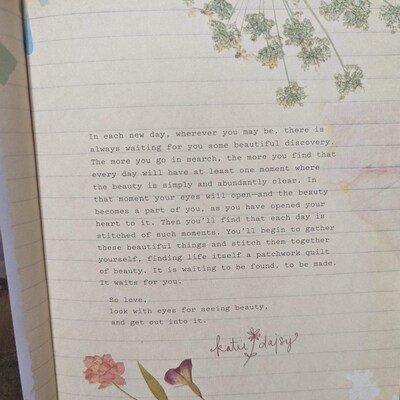 In each new day, wherever you may be, there is
always waiting for you some beautiful discovery.
The more you go in search, the more you find that
every day will have at least one moment where
the beauty is simply and abundantly clear. In
that moment your eyes will open—and the beauty
becomes a part of you, as you have opened your
heart to it. Then you'll find that each day is
stitched of such moments. You'll begin to gather
these beautiful things and stitch them together
yourself, finding life itself a patchwork quilt
of beauty. It is waiting to be found, to be made.
It waits for you.
So love,
look with eyes for seeing beauty,
and get out into it.
katie daisy